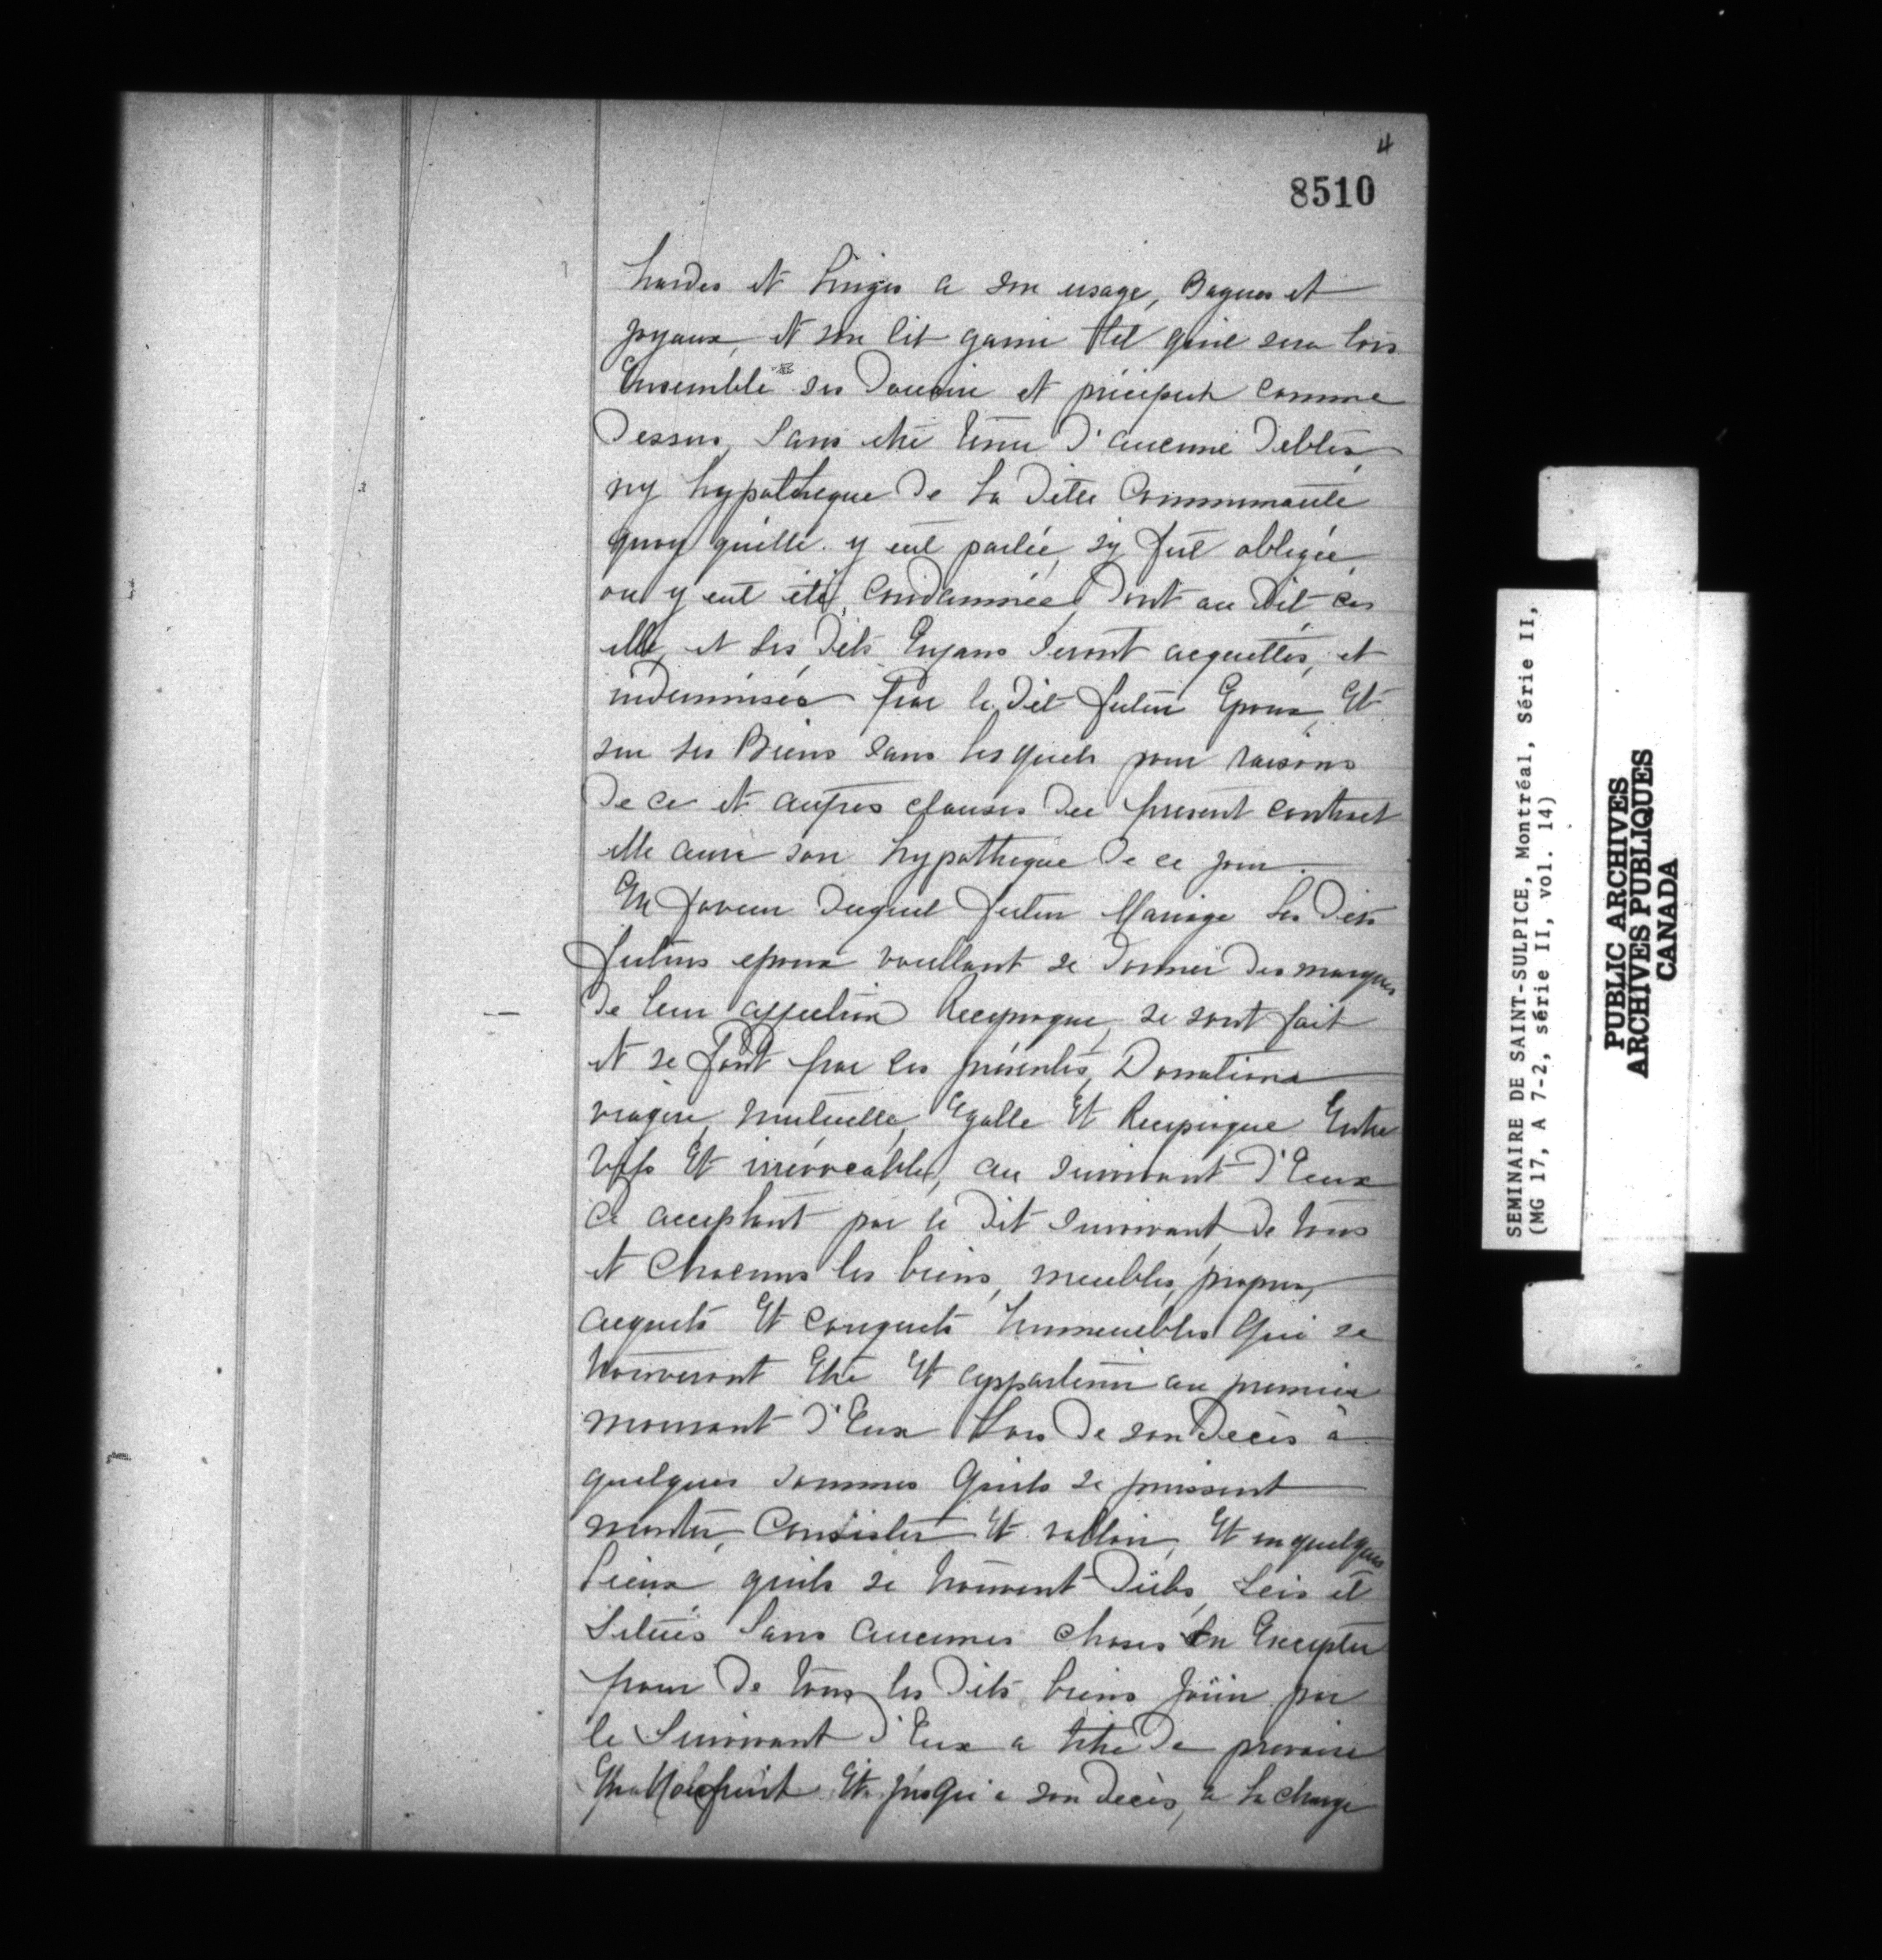 4
8510
hardes et linges a son usage, Bagues et
joyaux, et son lit garni tel qu'il sera lors
Ensemble ses Douaire et préciput comme
Dessus, Sans etre tenu d'aucune debtes,
ny hypotheque de La dite Communauté
quoy qu'elle y eut parlée, s'y fut obligée,
ou y eut été, Condamnée, Dont au dit cas
elle, et les dits Enfans seront acquittés, et
indemnisés par le dit futur Epoux, Et
sur ses Biens Sans lesquels pour raisons
de ce et autres clauses du present contract
elle aura son hypotheque de ce jour.
En faveur duquel futur Mariage Les dits
futurs epoux voullant se donner des marques
de leur affection Reciproque, se sont fait
et se font par ces présentes, Donations
viagere, mutuelle, Egalle Et Reciproque Entre
Vifs Et irrévocable, au survivant d'Eux
ce acceptant par le dit survivant, de tous
et Chacuns les biens, meubles, propres,
acquets Et conquets Immeubles Qui se
trouveront Etre Et appartenir au premier
mourant d'Eux Lors de son décès à
quelques sommes Qu'ils se puissent
monter, Consister Et valloir, Et en quelques
Lieux qu'ils se trouvent dûbs, Seis et
Situés Sans aucunes choses En Excepter
pour de tous les dits biens Joüir par
le Survivant d'Eux a titre de
Et jusqu'a son decès, a La charge
SEMINAIRE DE SAINT-SULPICE, Montréal, Série II,
(MG 17, A 7-2, série II, vol. 14)
PUBLIC ARCHIVES
ARCHIVES PUBLIQUES
CANADA